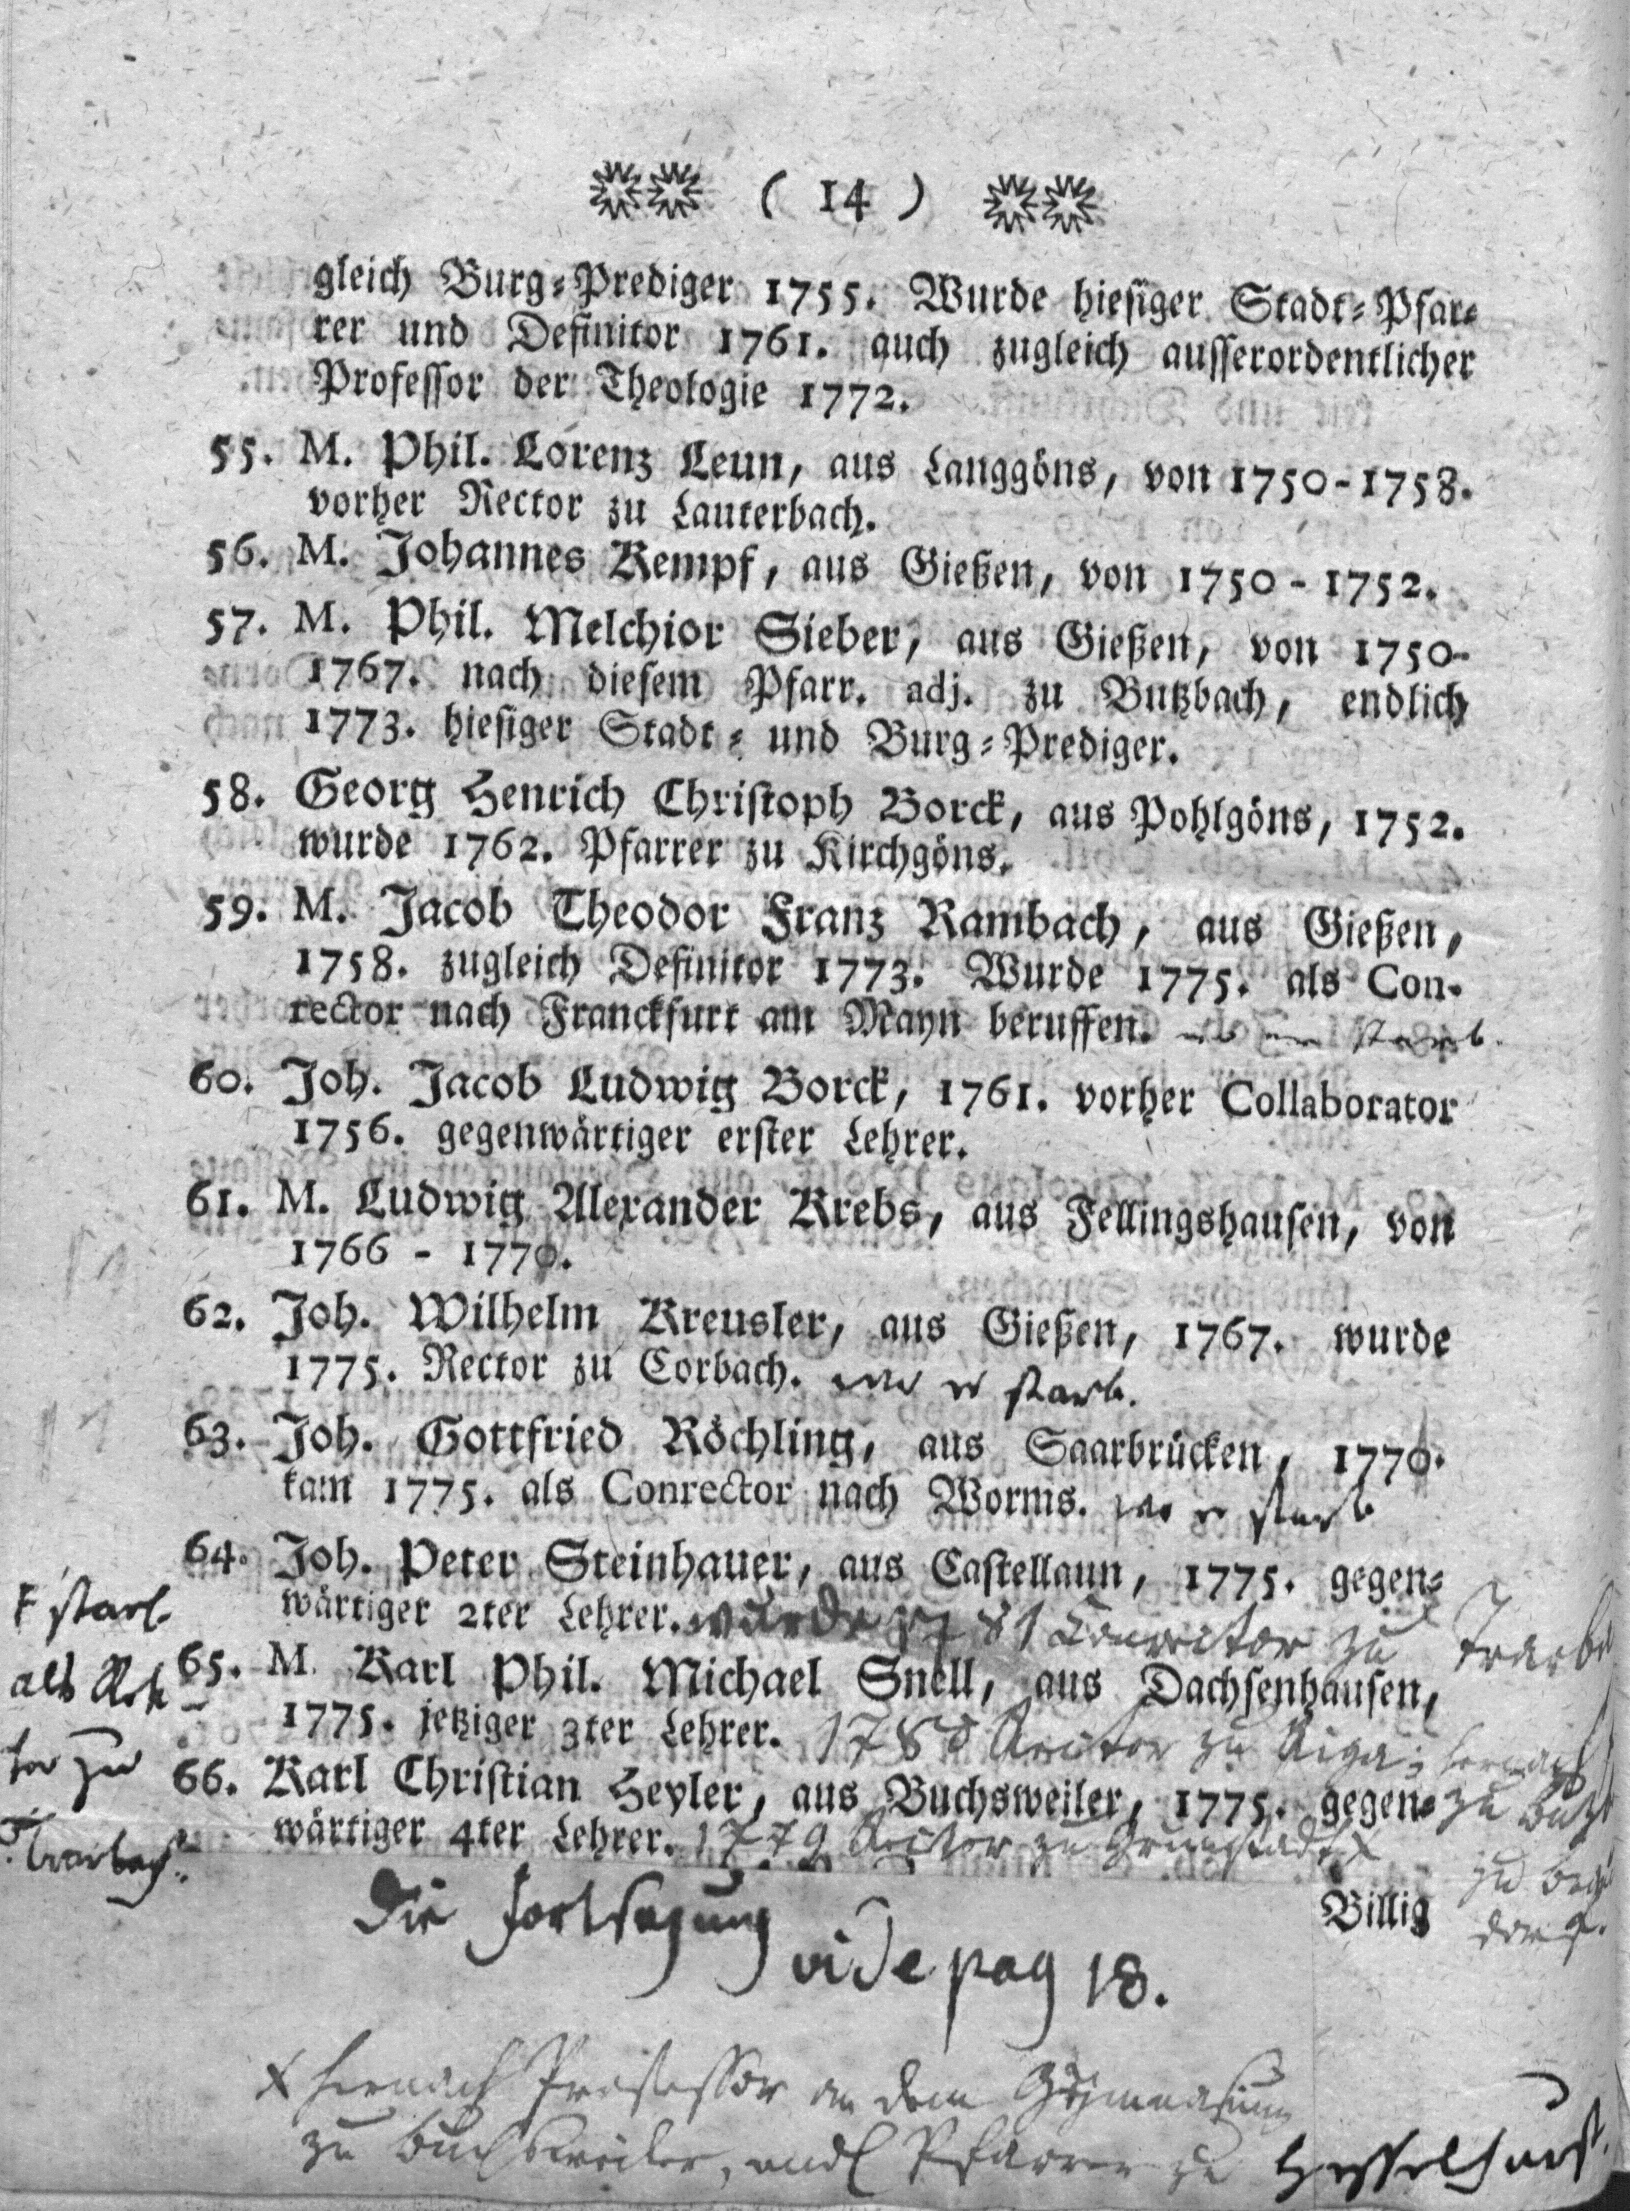 ( 14 )
gleich Burg-Prediger 1755. Wurde hiesiger Stadt-Pfar-
rer und Definitor 1761. auch zugleich ausserordentlicher
Professor der Theologie 1772.
55. M. Phil. Lorenz Leun, aus Langgöns, von 1750-1758.
vorher Rector zu Lauterbach.
56. M. Johannes Kempf, aus Gießen, von 1750 - 1752.
57. M. Phil. Melchior Sieber, aus Gießen, von 1750-
1767. nach diesem Pfarr. adj. zu Butzbach, endlich
1773. hiesiger Stadt- und Burg-Prediger.
58. Georg Henrich Christoph Borck, aus Pohlgöns, 1752.
wurde 1762. Pfarrer zu Kirchgöns.
59. M. Jacob Theodor Franz Rambach, aus Gießen,
1758. zugleich Definitor 1773. Wurde 1775. als Con-
rector nach Franckfurt am Mayn beruffen. wo er starb.
60. Joh. Jacob Ludwig Borck, 1761. vorher Collaborator
1756. gegenwärtiger erster Lehrer.
61. M. Ludwig Alexander Krebs, aus Fellingshausen, von
1766 - 1770.
62. Joh. Wilhelm Kreusler, aus Gießen, 1767. wurde
1775. Rector zu Corbach. wo er starb.
63. Joh. Gottfried Röchling, aus Saarbrücken, 1770.
kam 1775. als Conrector nach Worms. wo er starb
64. Joh. Peter Steinhauer, aus Castellaun, 1775. gegen-
wärtiger 2ter Lehrer. wurde 1781 Conrector zu Trarba
starb
als Rek
tor zu
Trarbach
65. M. Karl Phil. Michael Snell, aus Dachsenhausen,
1775. jetziger 3ter Lehrer. 1780 Rector zu Riga; hernach
zu Butzb
zu
66. Karl Christian Heyler, aus Buchsweiler, 1775. gegen-
wärtiger 4ter Lehrer. 1779 Rector zu Grünstadt x
Billig
Die Fortsezung
vide pag 18.
x hernach Professor an dem Gymnasium
zu Buchsweiler, endl Pfarrer zu Hesselhurst.